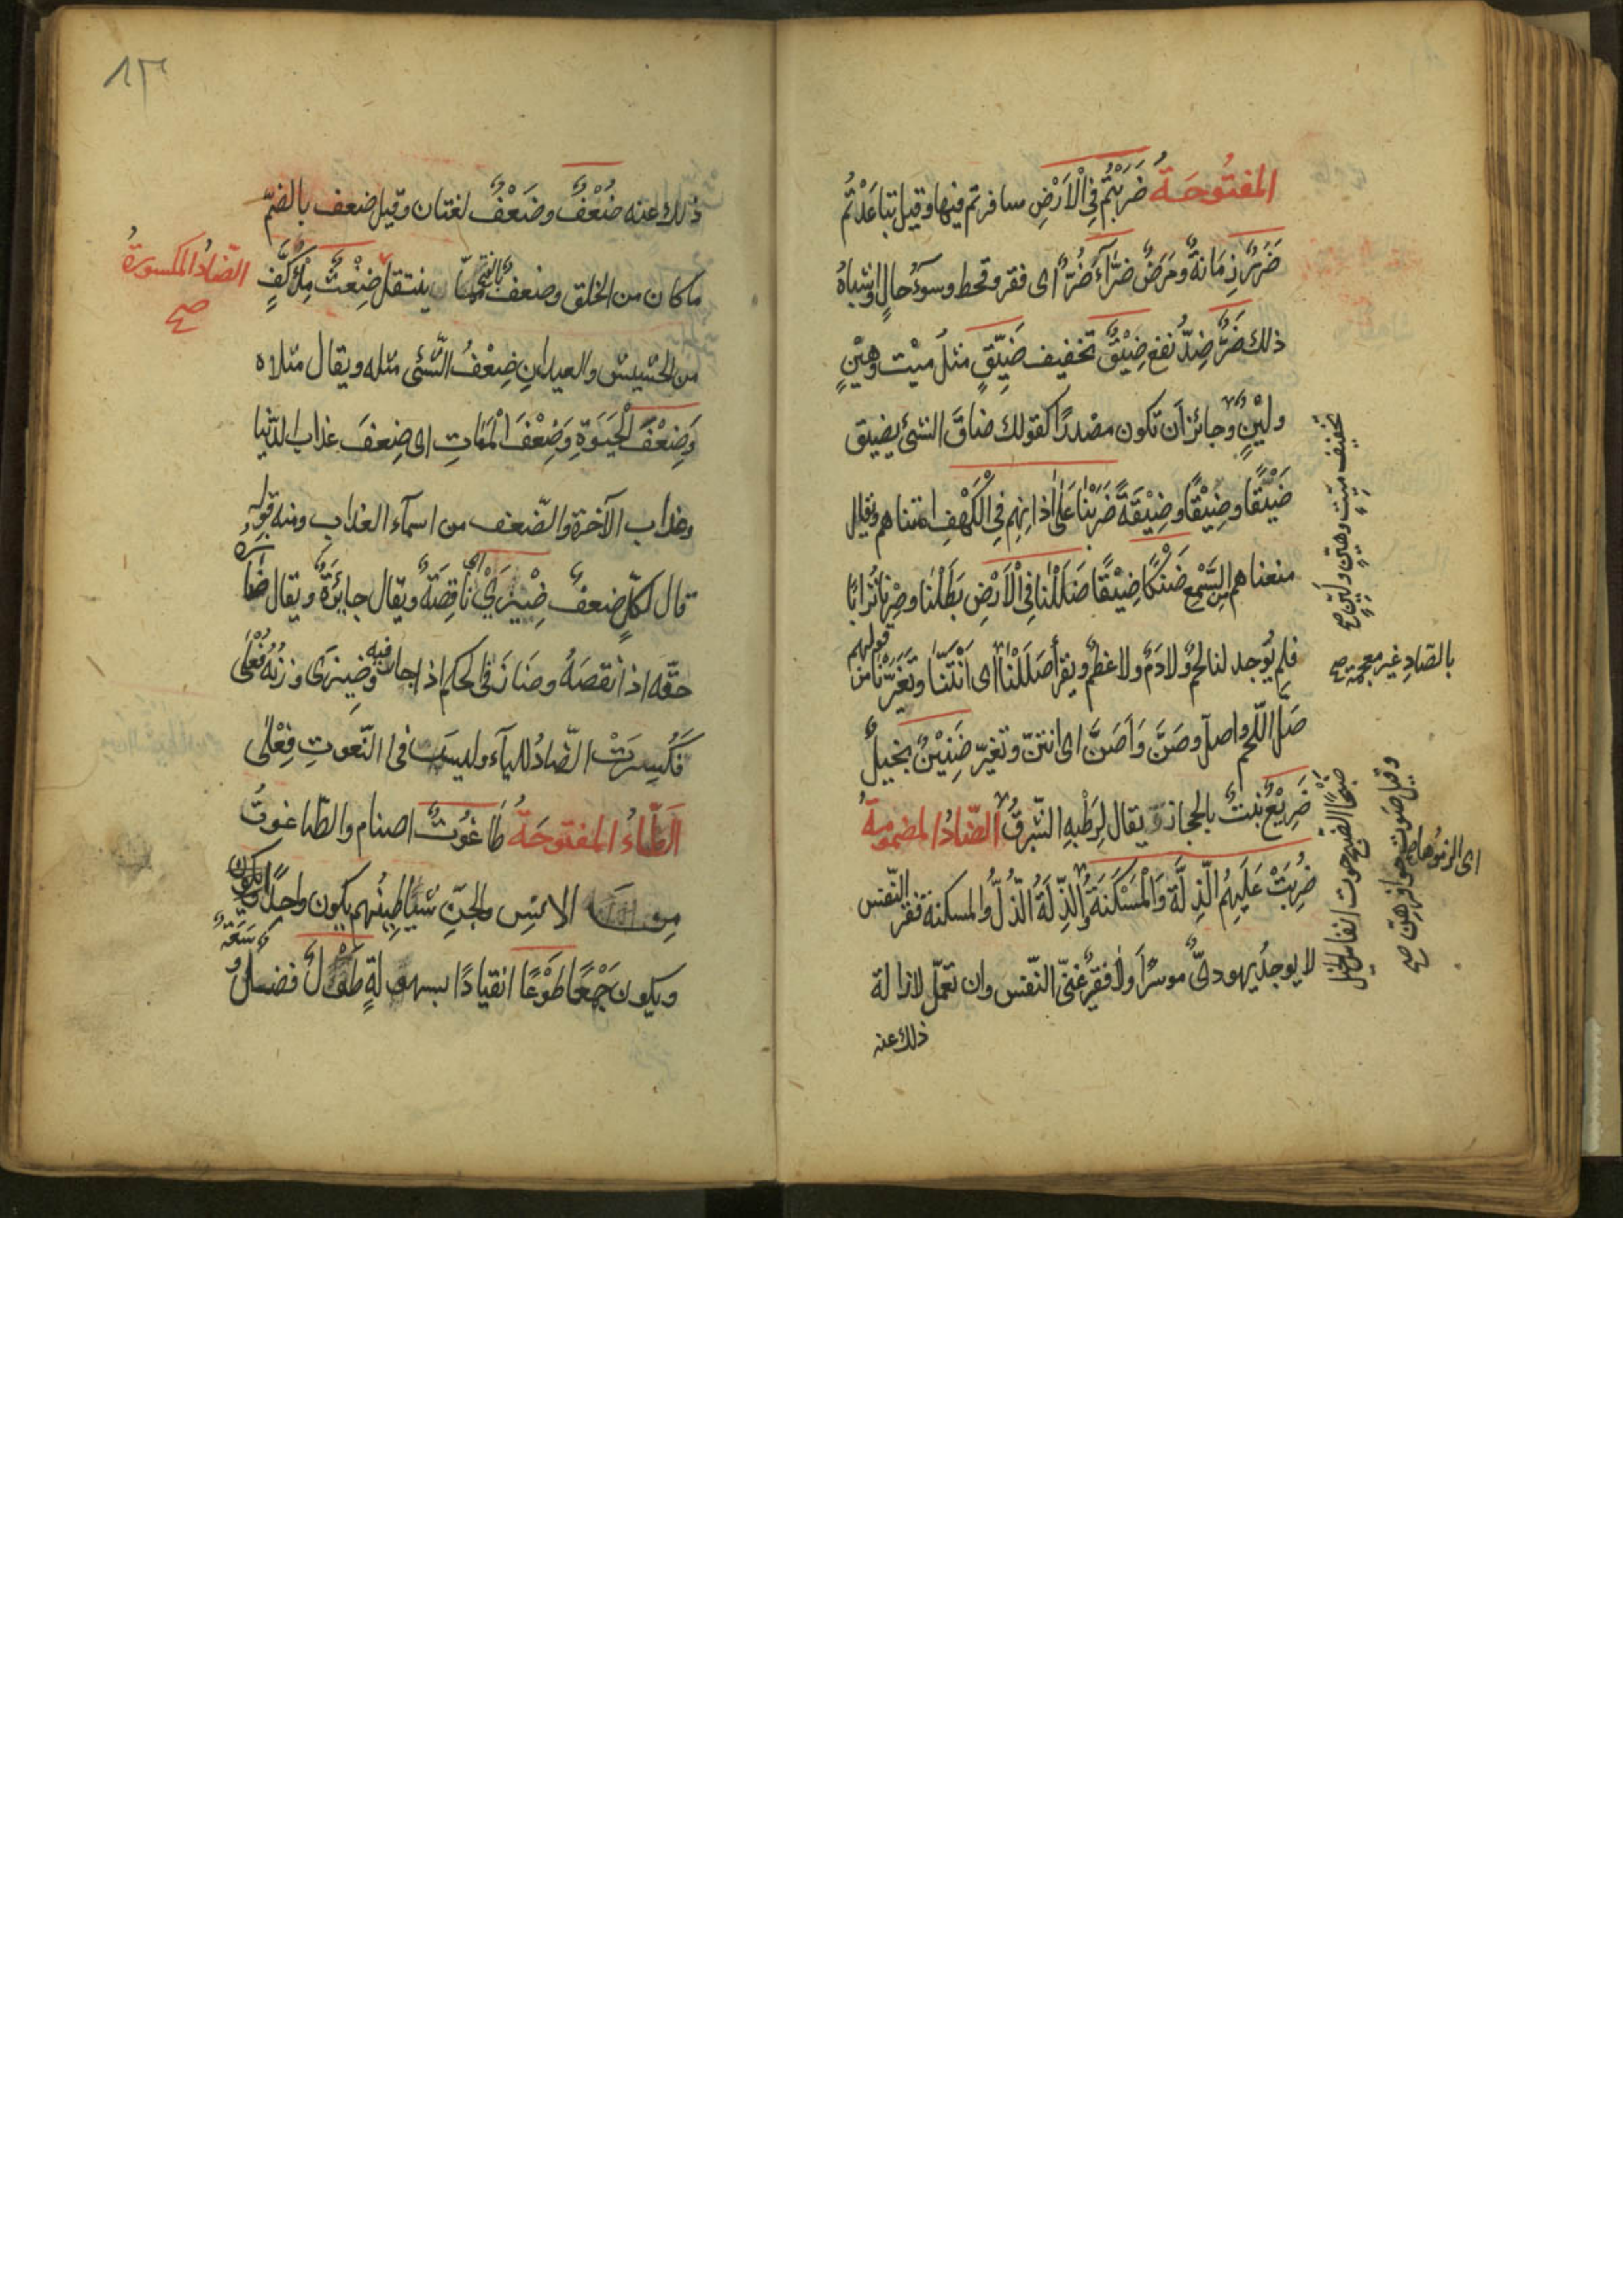 المفتُوحَةُ ضَرَبْتُمْ فِي الْاَرْضِ سافرتم فيها وقيل تباعَدْتُمْ
ضَرَرٌ زمَانةٌ ومَرَضٌ ضرّآءَ ضُرٌّ اى فقر وقحط وسوءُ حالٍ واشباهُ
ذلك ضَرٌّ ضِدُّ نفع ضَيْقٌ تخفيف ضَيِّقٍ مثلُ ميْت وهيْنٍ
وليْنٍ وجائز اَن تكون مصْدرًا كقولك ضاقَ الشئ يضيق
ضَيْقًا وضِيْقًا وضِيْقَةً ضَرَبْنَا عَلَى اٰذانِهِم فِي الْكَهْفِ امتناهم وقيل
منعناهم السَّمْع ضَنْكًا ضيْقًا ضَلَلْنَا فِي الْاَرْضِ بَطَلْنا وصِرْنا تُرابًا
فلم يُوجد لنا لحمٌ ولا دَمٌ ولا عَظمٌ ويقرأ صَلَلْنَا اى اَنْتَنَّا وتَغَيَّرْنا من قولهم
صَلَّ اللّحم واصلّ وصَنَّ وَاَصَنَّ اى انتن وتغيّر ضَنِيْنٌ بخيلٌ
ضَرِيْعٌ نبتٌ بالحجاز ويقال لِرَطْبِهِ الشّبرقُ الضّادُ المضمومةُ
ضُرِبَتْ عَلَيهِمُ الذِّلَّة وَالْمَسْكَنَةُ والذّلَةُ الذُّلُّ والمسكنة فقر النّفس
لا يوجدُ يهودىٌّ موسرًا ولا فقيرٌ غنىّ النّفس وان تعمّل لازالة
ذلك عنه
تخفيف ميّت وهيّن وليّن صح
بالصّادِ غير معجمة صح
ضَبْحًا الضبح صوت انفاس الخيل
وقيل صوت حوافرهن صح
ذلك عنه ضُعْفٌ وضَعْفٌ لغتان وقيل ضعف بالضمّ
ما كان من الخلق وضعفٌ بالفتح ينتقل ضِغْثٌ مِلْءُ كَفٍّ
الضّادُ المكسورةُ
صح
من الحشيش والعيدان ضِعْفُ الشّئ مثله ويقال مثلاه
وَضِعْفَ الْحَيٰوةِ وَضِعْفَ الْمَمَاتِ اى ضِعفَ عذاب الدّنيا
وعذاب الآخرة والضّعف من اسمآء العذاب ومنه قوله
قال لكلٍّ ضعفٌ ضِيْزَىٰ اى ناقِصَةٌ ويقال جايرَةٌ ويقال ضازه
حقّه اذا نقصَهُ وضَازَ فى الحكم اذا جار فيه وضيزى وزنُهُ فُعْلَى
فكُسِرَتْ الضّادُ للياء وليسَ فى النّعوتِ فِعْلٰى
اَلطّاءُ المفتوحَةُ طَاغُوتٌ اصنام والطّاغوتُ
مِن الانس والجنّ شياطِينُهم يكون واحدًا
ويكون جَمْعًا طَوْعًا انقيادًا بسهولةٍ طَوْلٌ فضل وسَعَةٌ